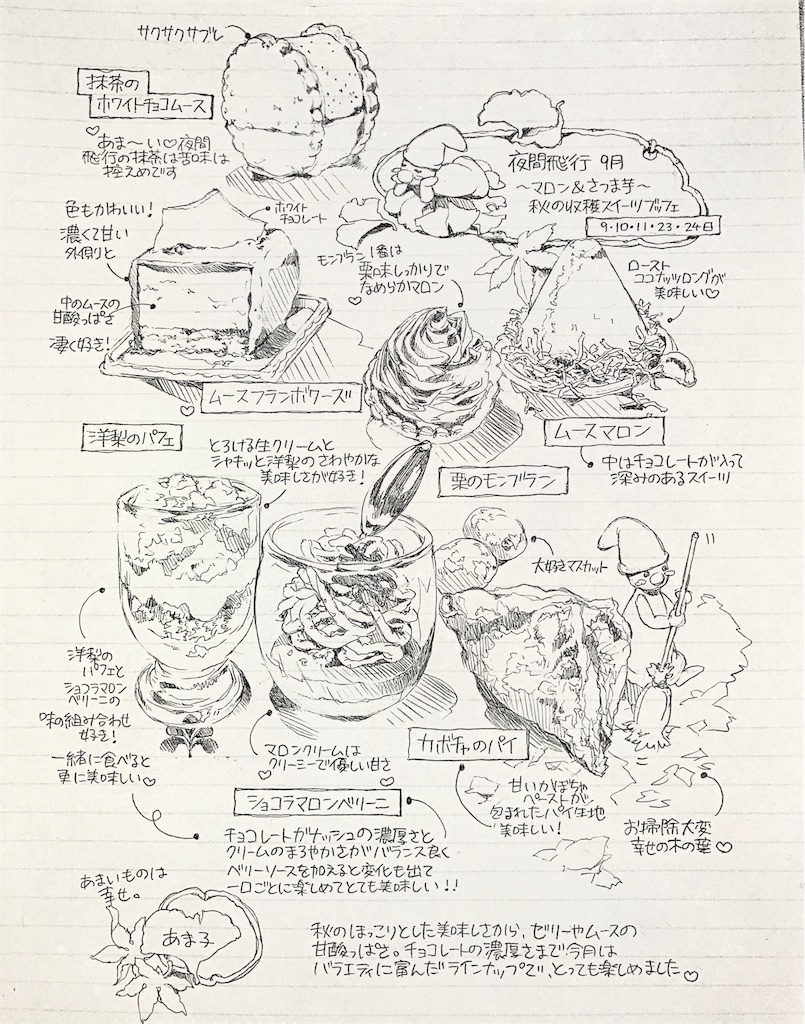 サクサクサブレ
抹茶の
ホワイトチョコムース
あま〜い♡夜間
飛行の抹茶は苦味は
控えめです
夜間飛行 9月
〜マロン&さつま芋〜
秋の収穫スイーツブッフェ
9・10・11・23・24日
色もかわいい!
濃くて甘い
外側と
中のムースの
甘酸っぱさ
凄く好き!
ホワイト
チョコレート
ムースフランボワーズ
モンブラン1番は
栗味しっかりで
なめらかマロン
栗のモンブラン
ロースト
ココナッツロングが
美味しい♡
ムースマロン
中はチョコレートが入って
深みのあるスイーツ
洋梨のパフェ
とろける生クリームと
シャキッと洋梨のさわやかな
美味しさが好き!
大好きマスカット
洋梨の
パフェと
ショコラマロン
ベリーニの
味の組み合わせ
好き!
一緒に食べると
更に美味しい♡
マロンクリームは
クリーミーで優しい甘さ
ショコラマロンベリーニ
チョコレートガナッシュの濃厚さと
クリームのまろやかさがバランス良く
ベリーソースを加えると変化も出て
一口ごとに楽しめてとても美味しい!!
カボチャのパイ
甘いかぼちゃ
ペーストが
包まれたパイ生地
美味しい!
お掃除大変
幸せの木の葉♡
あまいものは
幸せ。
あま子
秋のほっこりとした美味しさから、ゼリーやムースの
甘酸っぱさ。チョコレートの濃厚さまで今月は
バラエティに富んだラインナップで、とっても楽しめました♡